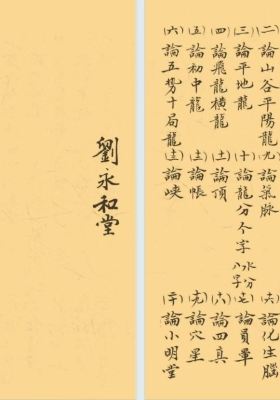 (二)論山谷平陽龍
(三)論平地龍
(四)論飛龍橫龍
(五)論初中龍
(六)論五勢十局龍
(九)論氣脈
(十)論龍分个字水分八字
(十一)論頂
(十二)論帳
(十三)論峽
(十六)論化生腦
(十七)論員暈
(十八)論四真
(十九)論穴星
(二十)論小明堂
劉永和堂